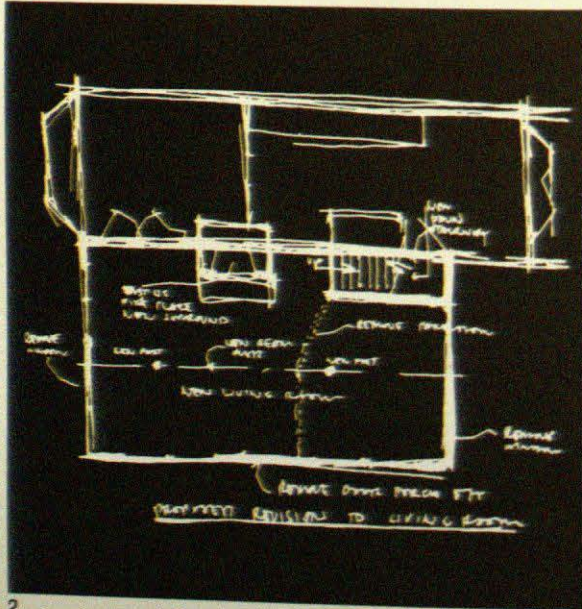 NEW
DOWN
STAIRWAY
UP
FIRE PLACE
NEW SURROUND
REMOVE PARTITION
REMOVE
WINDOW
NEW POST
NEW BEAM
OVER
NEW POST
NEW LIVING ROOM
REMOVE
WINDOW
REMOVE DOOR PORCH ETC
PROPOSED REVISION TO LIVING ROOM
2